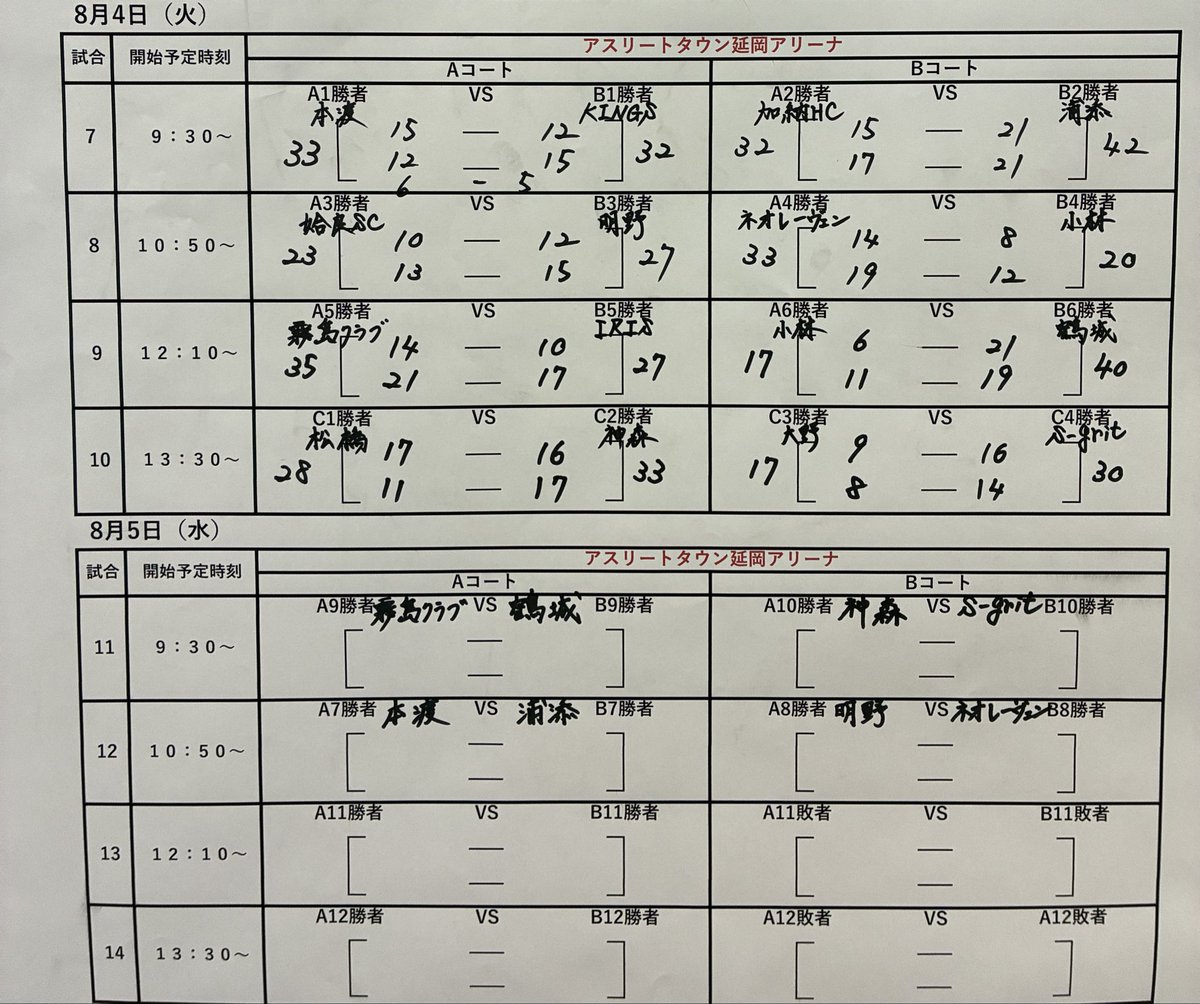 8月4日（火）
試合 開始予定時刻 アスリートタウン延岡アリーナ
Aコート Bコート
7 9：30～
A1勝者 VS B1勝者
本渡 KINGS
15 — 12
33 32
12 — 15
6 - 5
A2勝者 VS B2勝者
加納HC 浦添
15 — 21
32 42
17 — 21
8 10：50～
A3勝者 VS B3勝者
姶良SC 明野
10 — 12
23 27
13 — 15
A4勝者 VS B4勝者
ネオレーヴェン 小林
14 — 8
33 20
19 — 12
9 12：10～
A5勝者 VS B5勝者
霧島クラブ IRIS
14 — 10
35 27
21 — 17
A6勝者 VS B6勝者
小林 鶴城
6 — 21
17 40
11 — 19
10 13：30～
C1勝者 VS C2勝者
松橋 神森
17 — 16
28 33
11 — 17
C3勝者 VS C4勝者
大野 S-grit
9 — 16
17 30
8 — 14
8月5日（水）
試合 開始予定時刻 アスリートタウン延岡アリーナ
Aコート Bコート
11 9：30～
A9勝者 霧島クラブ VS 鶴城 B9勝者
A10勝者 神森 VS S-grit B10勝者
12 10：50～
A7勝者 本渡 VS 浦添 B7勝者
A8勝者 明野 VS ネオレーヴェン B8勝者
13 12：10～
A11勝者 VS B11勝者
A11敗者 VS B11敗者
14 13：30～
A12勝者 VS B12勝者
A12敗者 VS A12敗者